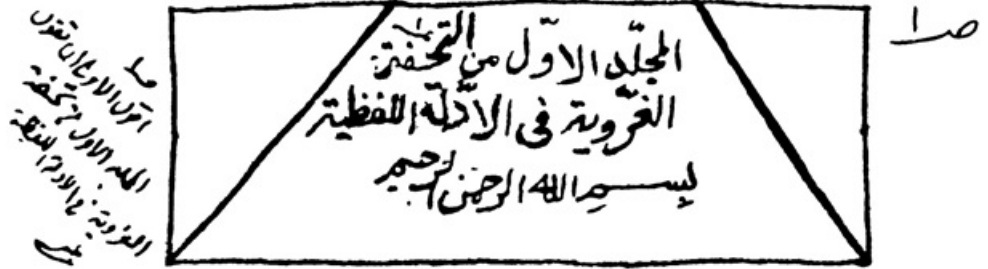 ص ١
المجلّد الاوّل من التحفة
الغرّوية فى الادّلة اللفظية
بسم الله الرحمن الرحيم
اقول الاولى ان تقول
المجلد الاول من تحفة
الغروية فى الادلة اللفظية